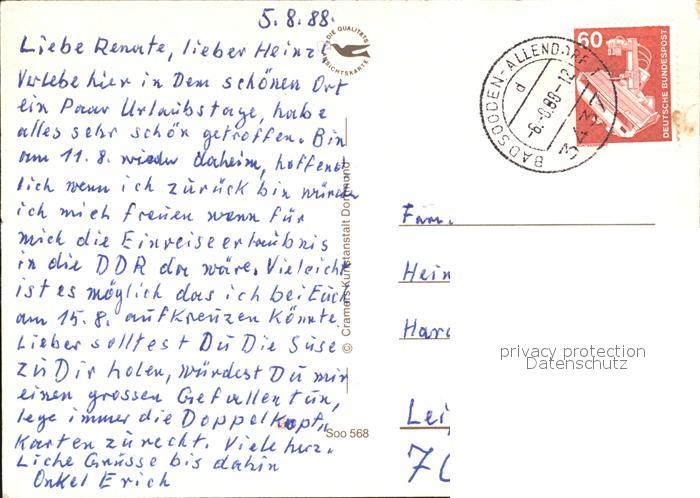 5.8.88.
Liebe Renate, lieber Heinz!
Verlebe hier in Dem schönen Ort
ein Paar Urlaubstage, habe
alles sehr schön getroffen. Bin
am 11.8. wieder daheim, hoffent
lich wenn ich zurück bin würde
ich mich freuen wenn für
mich die Einreiseerlaubnis
in die DDR da wäre. Vieleicht
ist es möglich das ich bei Euch
am 15.8. aufkreuzen könnte.
Lieber solltest Du Die Suse
zu Dir holen, würdest Du mir
einen grossen Gefallen tun,
lege immer die Doppelkopf,
Karten zurecht. Viele herz-
Liche Grüsse bis dahin
Onkel Erich
DIE QUALITÄTS
ANSICHTSKARTE
© Cramers Kunstanstalt Dortmund
Soo 568
60
DEUTSCHE BUNDESPOST
BAD SOODEN-ALLENDORF
d
-6.-8.88-12
Fam.
Hein
Har
Lei
70
privacy protection
Datenschutz